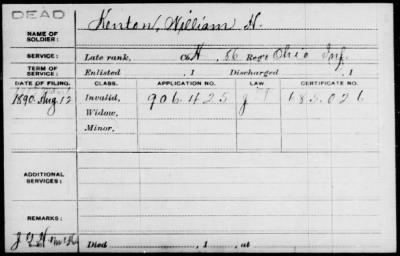 DEAD
NAME OF SOLDIER: Kenton, William H.
SERVICE: Late rank, Co. H, 86 Reg't Ohio Inf.
TERM OF SERVICE: Enlisted , 1 Discharged , 1
DATE OF FILING. CLASS. APPLICATION NO. LAW CERTIFICATE NO.
1890 Aug 12 Invalid, 906.425 685.026
Widow,
Minor,
ADDITIONAL SERVICES:
REMARKS:
Died , 1 , at